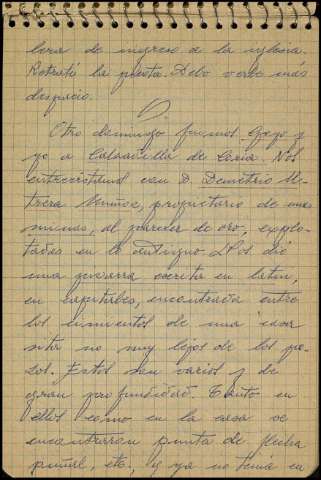 lera de ingreso a la iglesia.
Retraté la puerta. Debo verla más
despacio.
Otro domingo fuimos Goyo y
yo a Calzadilla de Coria. Nos
entrevistamos con D. Demetrio
Muñoz, propietario de unas
minas, al parecer de oro, explo-
tadas en lo antiguo. Nos dió
una pizarra escrita en latín,
en capitales, encontrada entre
los cimientos de una casa
sita no muy lejos de los po-
zos. Estos son varios y de
gran profundidad. Tanto en
ellos como en la casa se
encontraron punta de flecha
puñal, etc., y ya no tenía en